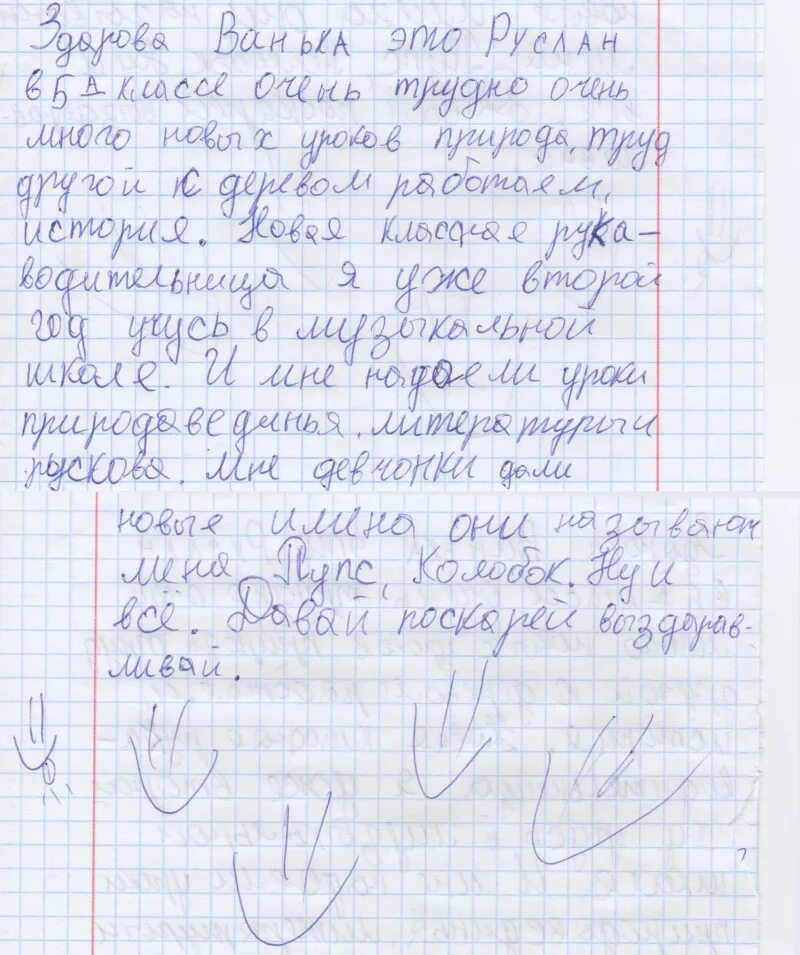 Здарова Ванька это Руслан
в 5 А классе очень трудно очень
много новых уроков природа, труд
другой с деревом работаем,
история. Новая классная рука-
водительница я уже второй
год учусь в музыкальной
школе. И мне надоели уроки
природавединья. литературы и
рускова. Мне девчонки дали
новые имена они называют
меня Пупс, Колобок. Ну и
всё. Давай поскарей выздорав-
ливай.